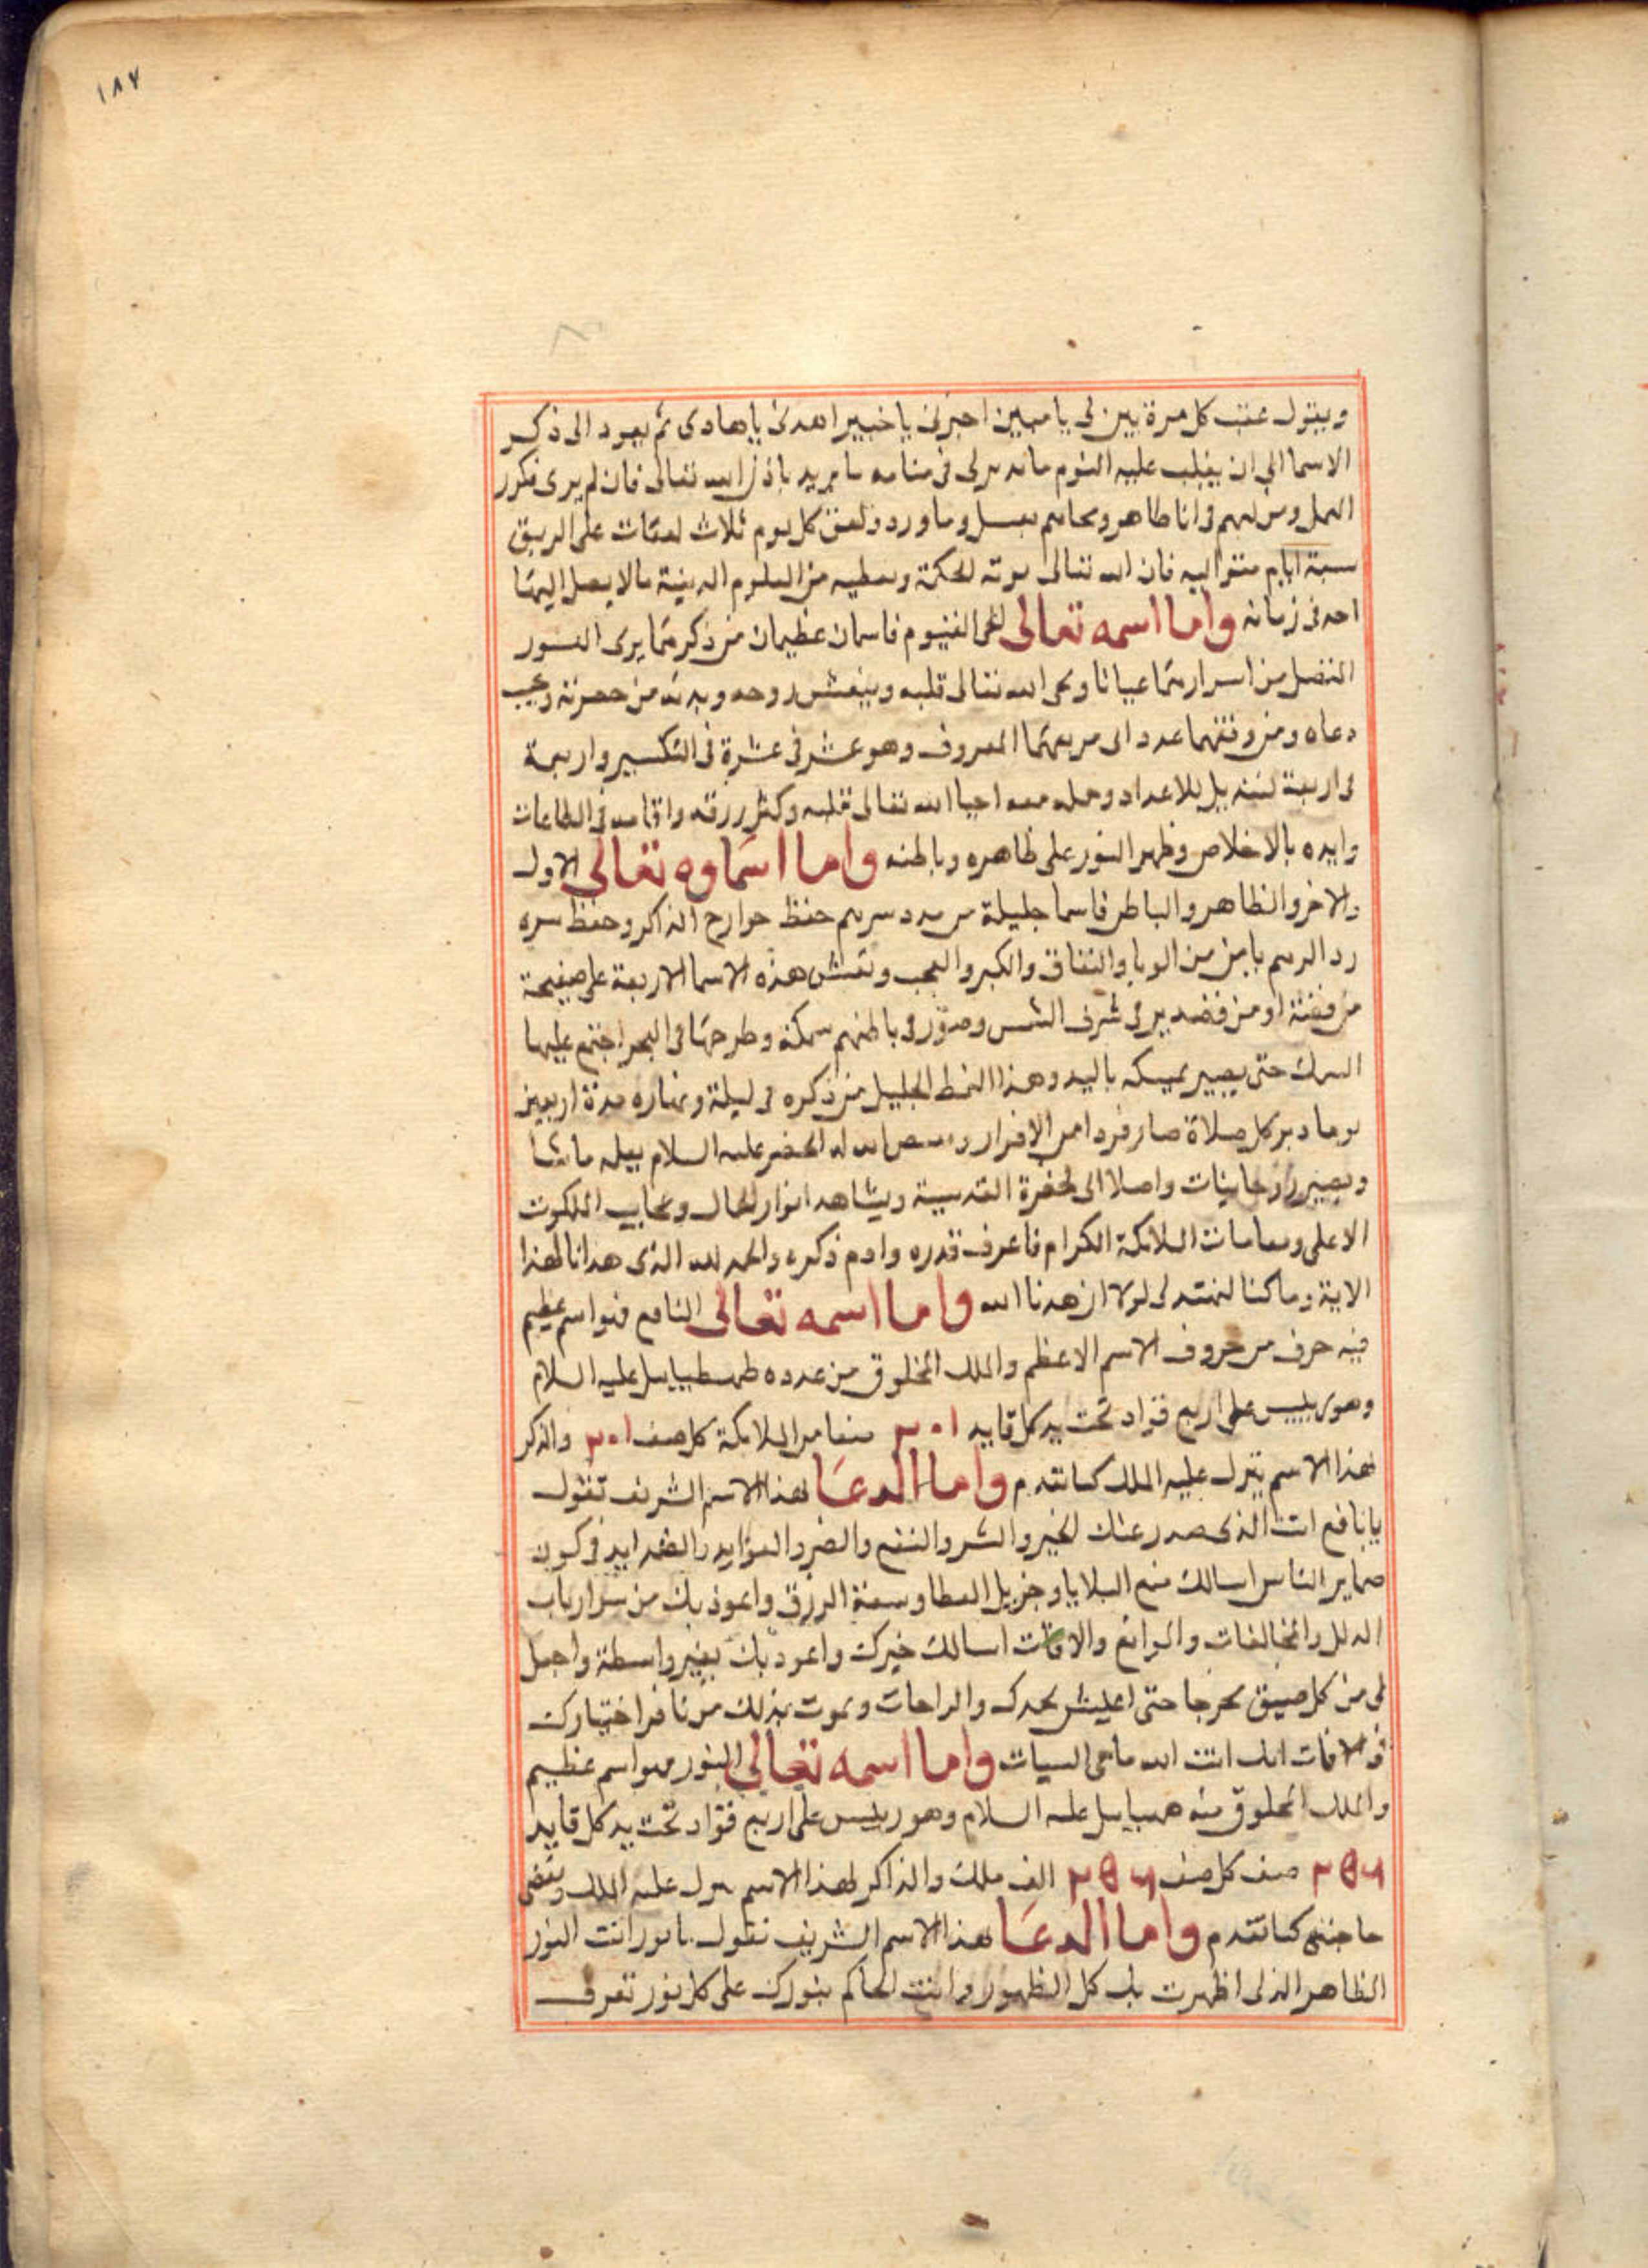 ١٨٧
ويقول عقب كل مرة بين لى يا مبين اخبرنى يا خبير اهدنى يا هادى ثم يعود الى ذكر
الاسما الى ان يغلب عليه النوم فانه يرى فى منامه ما يريد باذن الله تعالى فان لم يرى فكرر
العمل ومن فى انا طاهر ومحاهم بعسل وما ورد ولعق كل يوم ثلاث لعقات على الريق
سبعة ايام متواليه فان الله تعالى يوته الحكمة ويعطيه من العلوم الدينية مالا يصل اليها
احد فى زمانه واما اسمه تعالى الحى القيوم فاسمان عظيمان من ذكرهما يرى النور
من اسرارهما عيانا ويحى الله تعالى قلبه وينعش روحه وبدنه من حضرته
دعاه ومن وفقهما عدد الى مربعهما المعروف وهو عشر فى عشرة فى التكسير واربعة
فى اربعة للاعداد وحمله معه احيا الله تعالى قلبه وكثر رزقه واقامه فى الطاعات
وايده بالاخلاص وظهر النور على ظاهره وباطنه واما اسماوه تعالى الاول
والاخر والظاهر والباطن فاسما جليلة من سرهم حفظ جوارح الذاكر وحفظ سره
من الريا والنفاق والكبر والعجب ونقش هذه الاسما الاربعة على صفيحة
من فضة او من فى شرف الشمس وصور فى باطنهم سمكة وطرحها فى البحر اجتمع عليها
السمك حتى يصير يمسكه باليد وهذا النمط الجليل من ذكره فى ليلة ونهاره مدة اربعين
يوما دبر كل صلاة صار فردا من الافراد الخضر عليه السلام ما شا
ويصير واصلا الى الحضرة القدسية ويشاهد انوار الحال وعجايب الملكوت
الاعلى ومقامات الملايكة الكرام فاعرف قدره وادم ذكره والحمد لله الذى هدانا لهذا
الاية وما كنا لنهتدى لولا ان هدنا الله واما اسمه تعالى النافع فهو اسم عظيم
فيه حرف من حروف الاسم الاعظم والملك المخلوق من عدده طهسطيياييل عليه السلام
وهو رييس على اربع قواد تحت يد كل قايد ٢٠١ صفا من الملايكة كل صف ٢٠١ والذكر
لهذا الاسم ينزل عليه الملك كما تقدم واما الدعا لهذا الاسم الشريف تقول
يا نافع انت الذى صدر عنك الخير والشر والنفع والضر والفوايد والشدايد فى كون
ضماير الناس اسالك منع البلايا وجزيل العطا وسعة الرزق واعوذ بك من شر ارباب
الدلل والمخالفات والموانع والافات اسالك خيرك واعوذ بك بغير واسطة واجعل
لى من كل ضيق مخرجا حتى اعيش بحمدك والراحات وبموت بذلك من نافر اختيارك
فى الافات انك انت الله ماحى السيات واما اسمه تعالى النور فهو اسم عظيم
والملك المخلوق منه هيياييل عليه السلام وهو رييس على اربع قواد تحت يد كل قايد
٢٥٦ صف كل صف ٢٥٦ الف ملك والذاكر لهذا الاسم ينزل عليه الملك ويقضى
حاجته كما تقدم واما الدعا لهذا الاسم الشريف تقول يا نور انت النور
الظاهر الذى اظهرت بك كل الظهور وانت الحاكم بنورك على كل نور تعرف